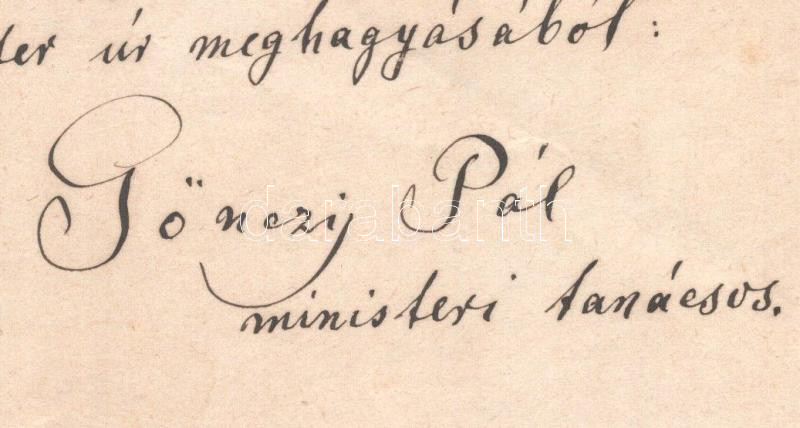 ter úr meghagyásából:
Gönczy Pál
ministeri tanácsos.
darabanth